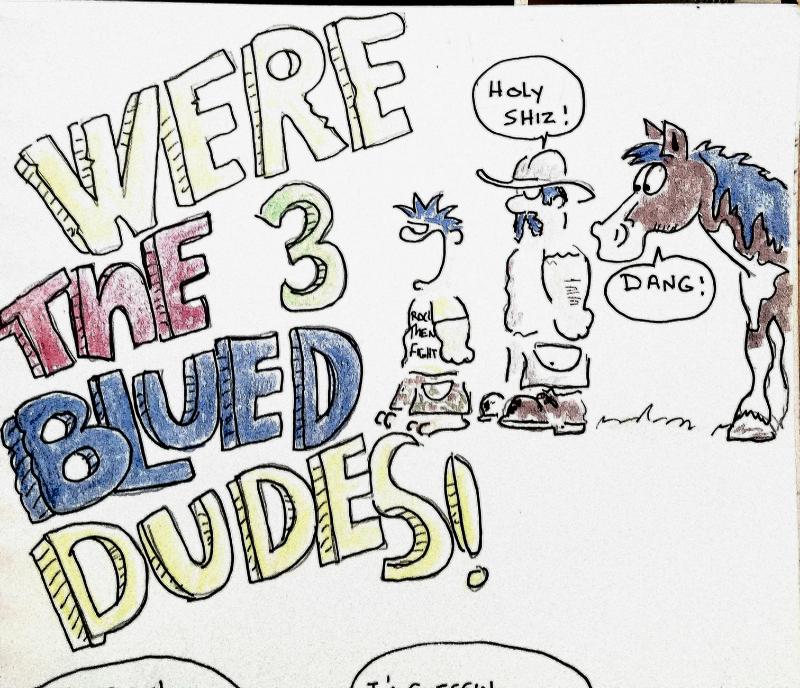 WERE
THE 3
BLUED
DUDES!
HOLY
SHIZ!
DANG!
ROCK
THEN
FIGHT